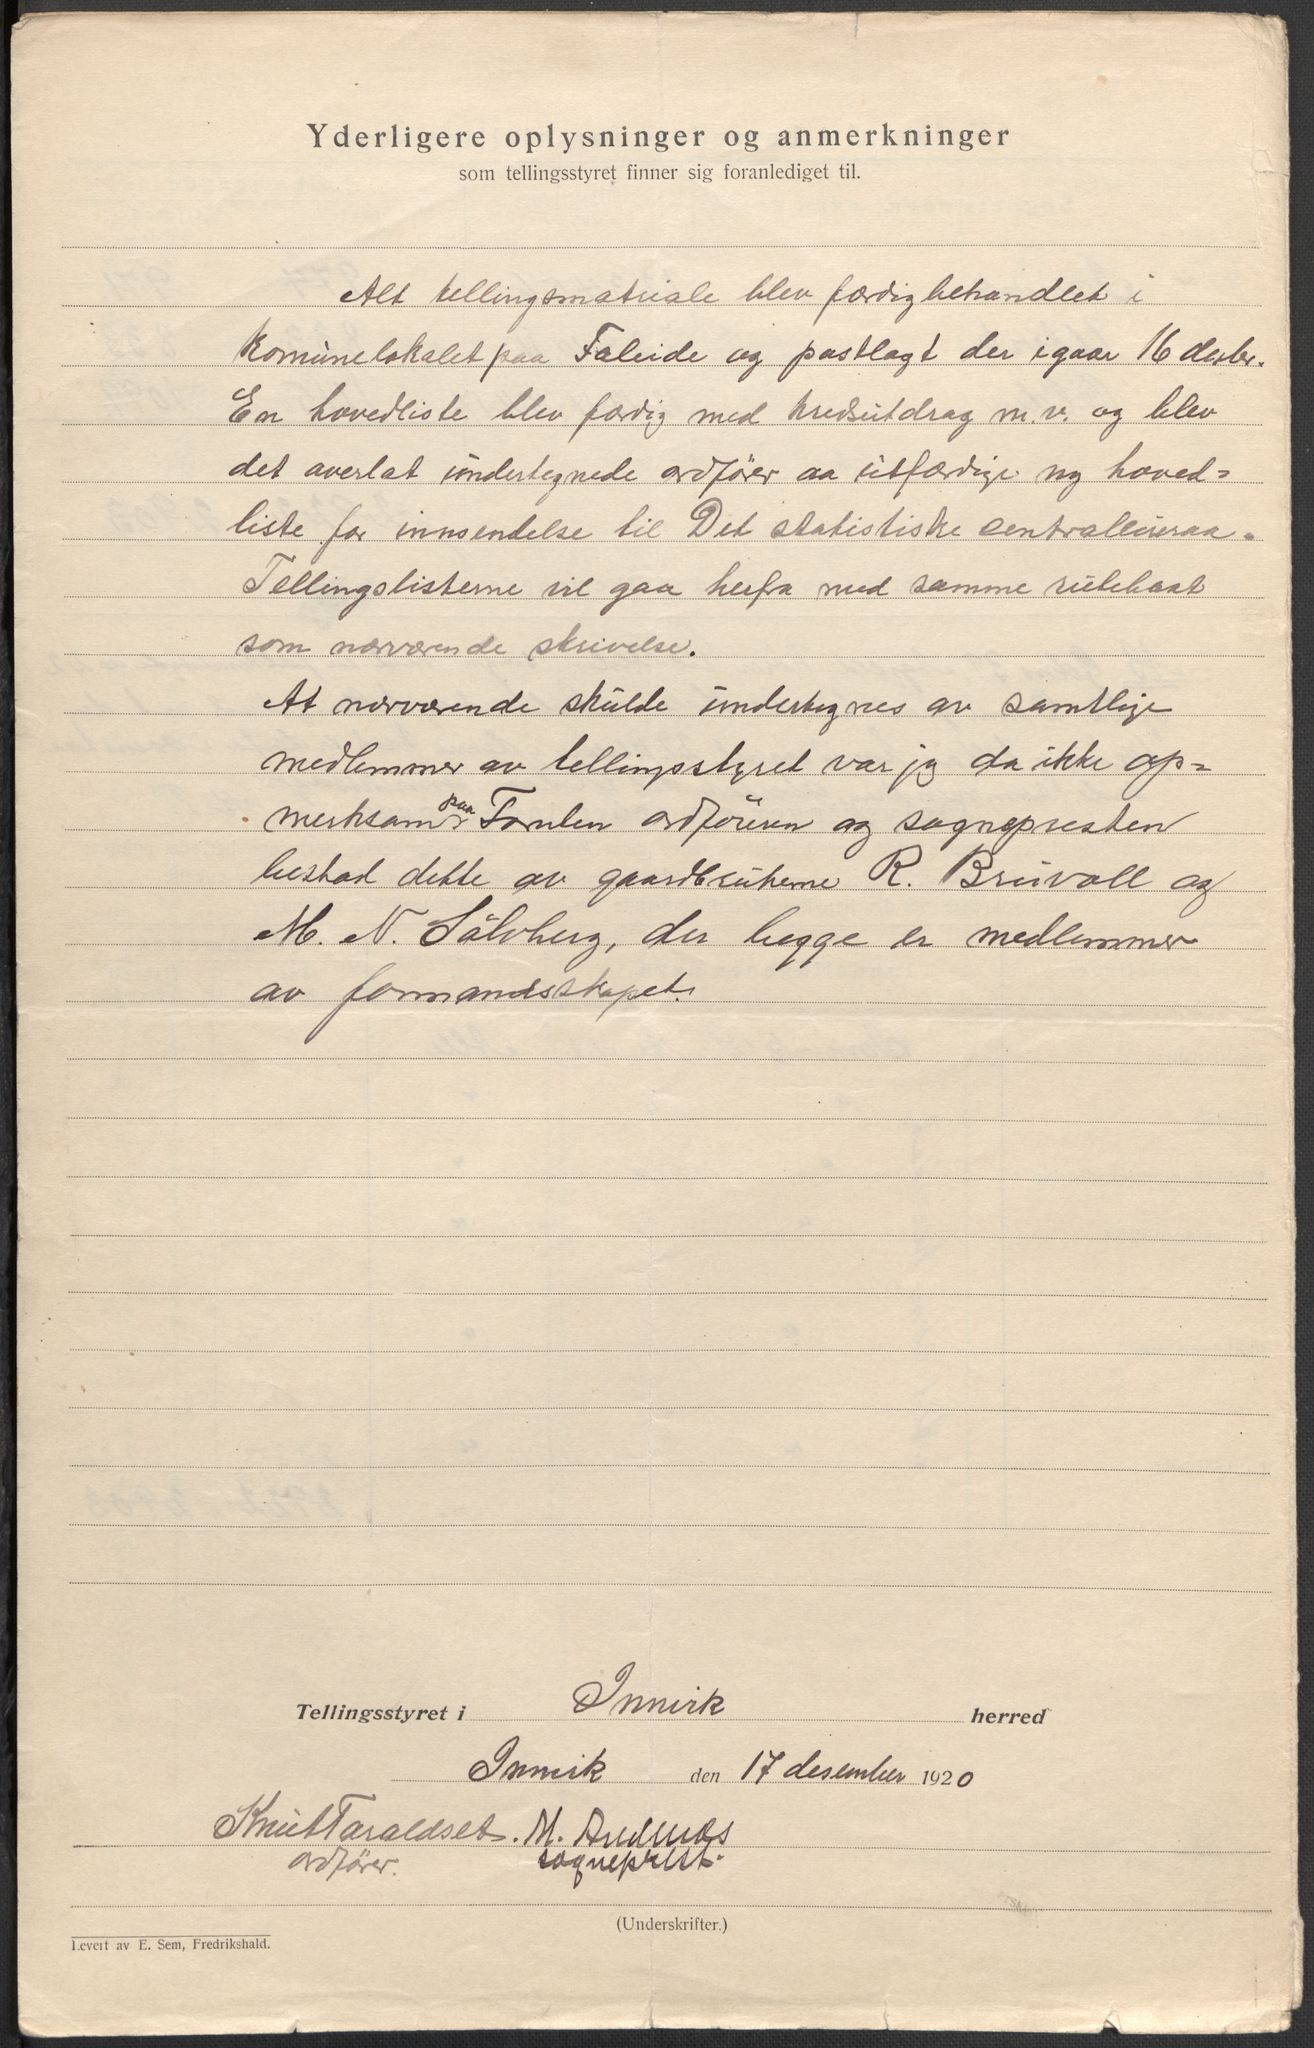 Yderligere oplysninger og anmerkninger
som tellingsstyret finner sig foranlediget til.
Alt tellingsmatriale blev færdigbehandlet i
komunelokalet paa Faleide og postlagt der igaar 16 desbr.
En hovedliste blev færdig med kredsutdrag m.v. og blev
det averlat undertegnede ordfører aa utfærdige ny hoved=
liste for innsendelse til Det statistiske centralbureaa.
Tellingslisterne vil gaa herfra med samme rutebaat
som nærværende skrivelse.
At nærværende skulde undertegnes av samtlige
medlemmer av tellingsstyret var jeg da ikke op=
merksam paa Foruten ordføreren og sognepresten
bestod dette av gaardbrukerne R. Bruvoll og
M. N. Sølvberg, der begge er medlemmer
av formandsskapet.
Tellingsstyret i Innvik herred
Innvik den 17 desember 1920
Knut Taraldset. M. Andenæs
ordfører. sogneprest.
(Underskrifter.)
Levert av E. Sem, Fredrikshald.